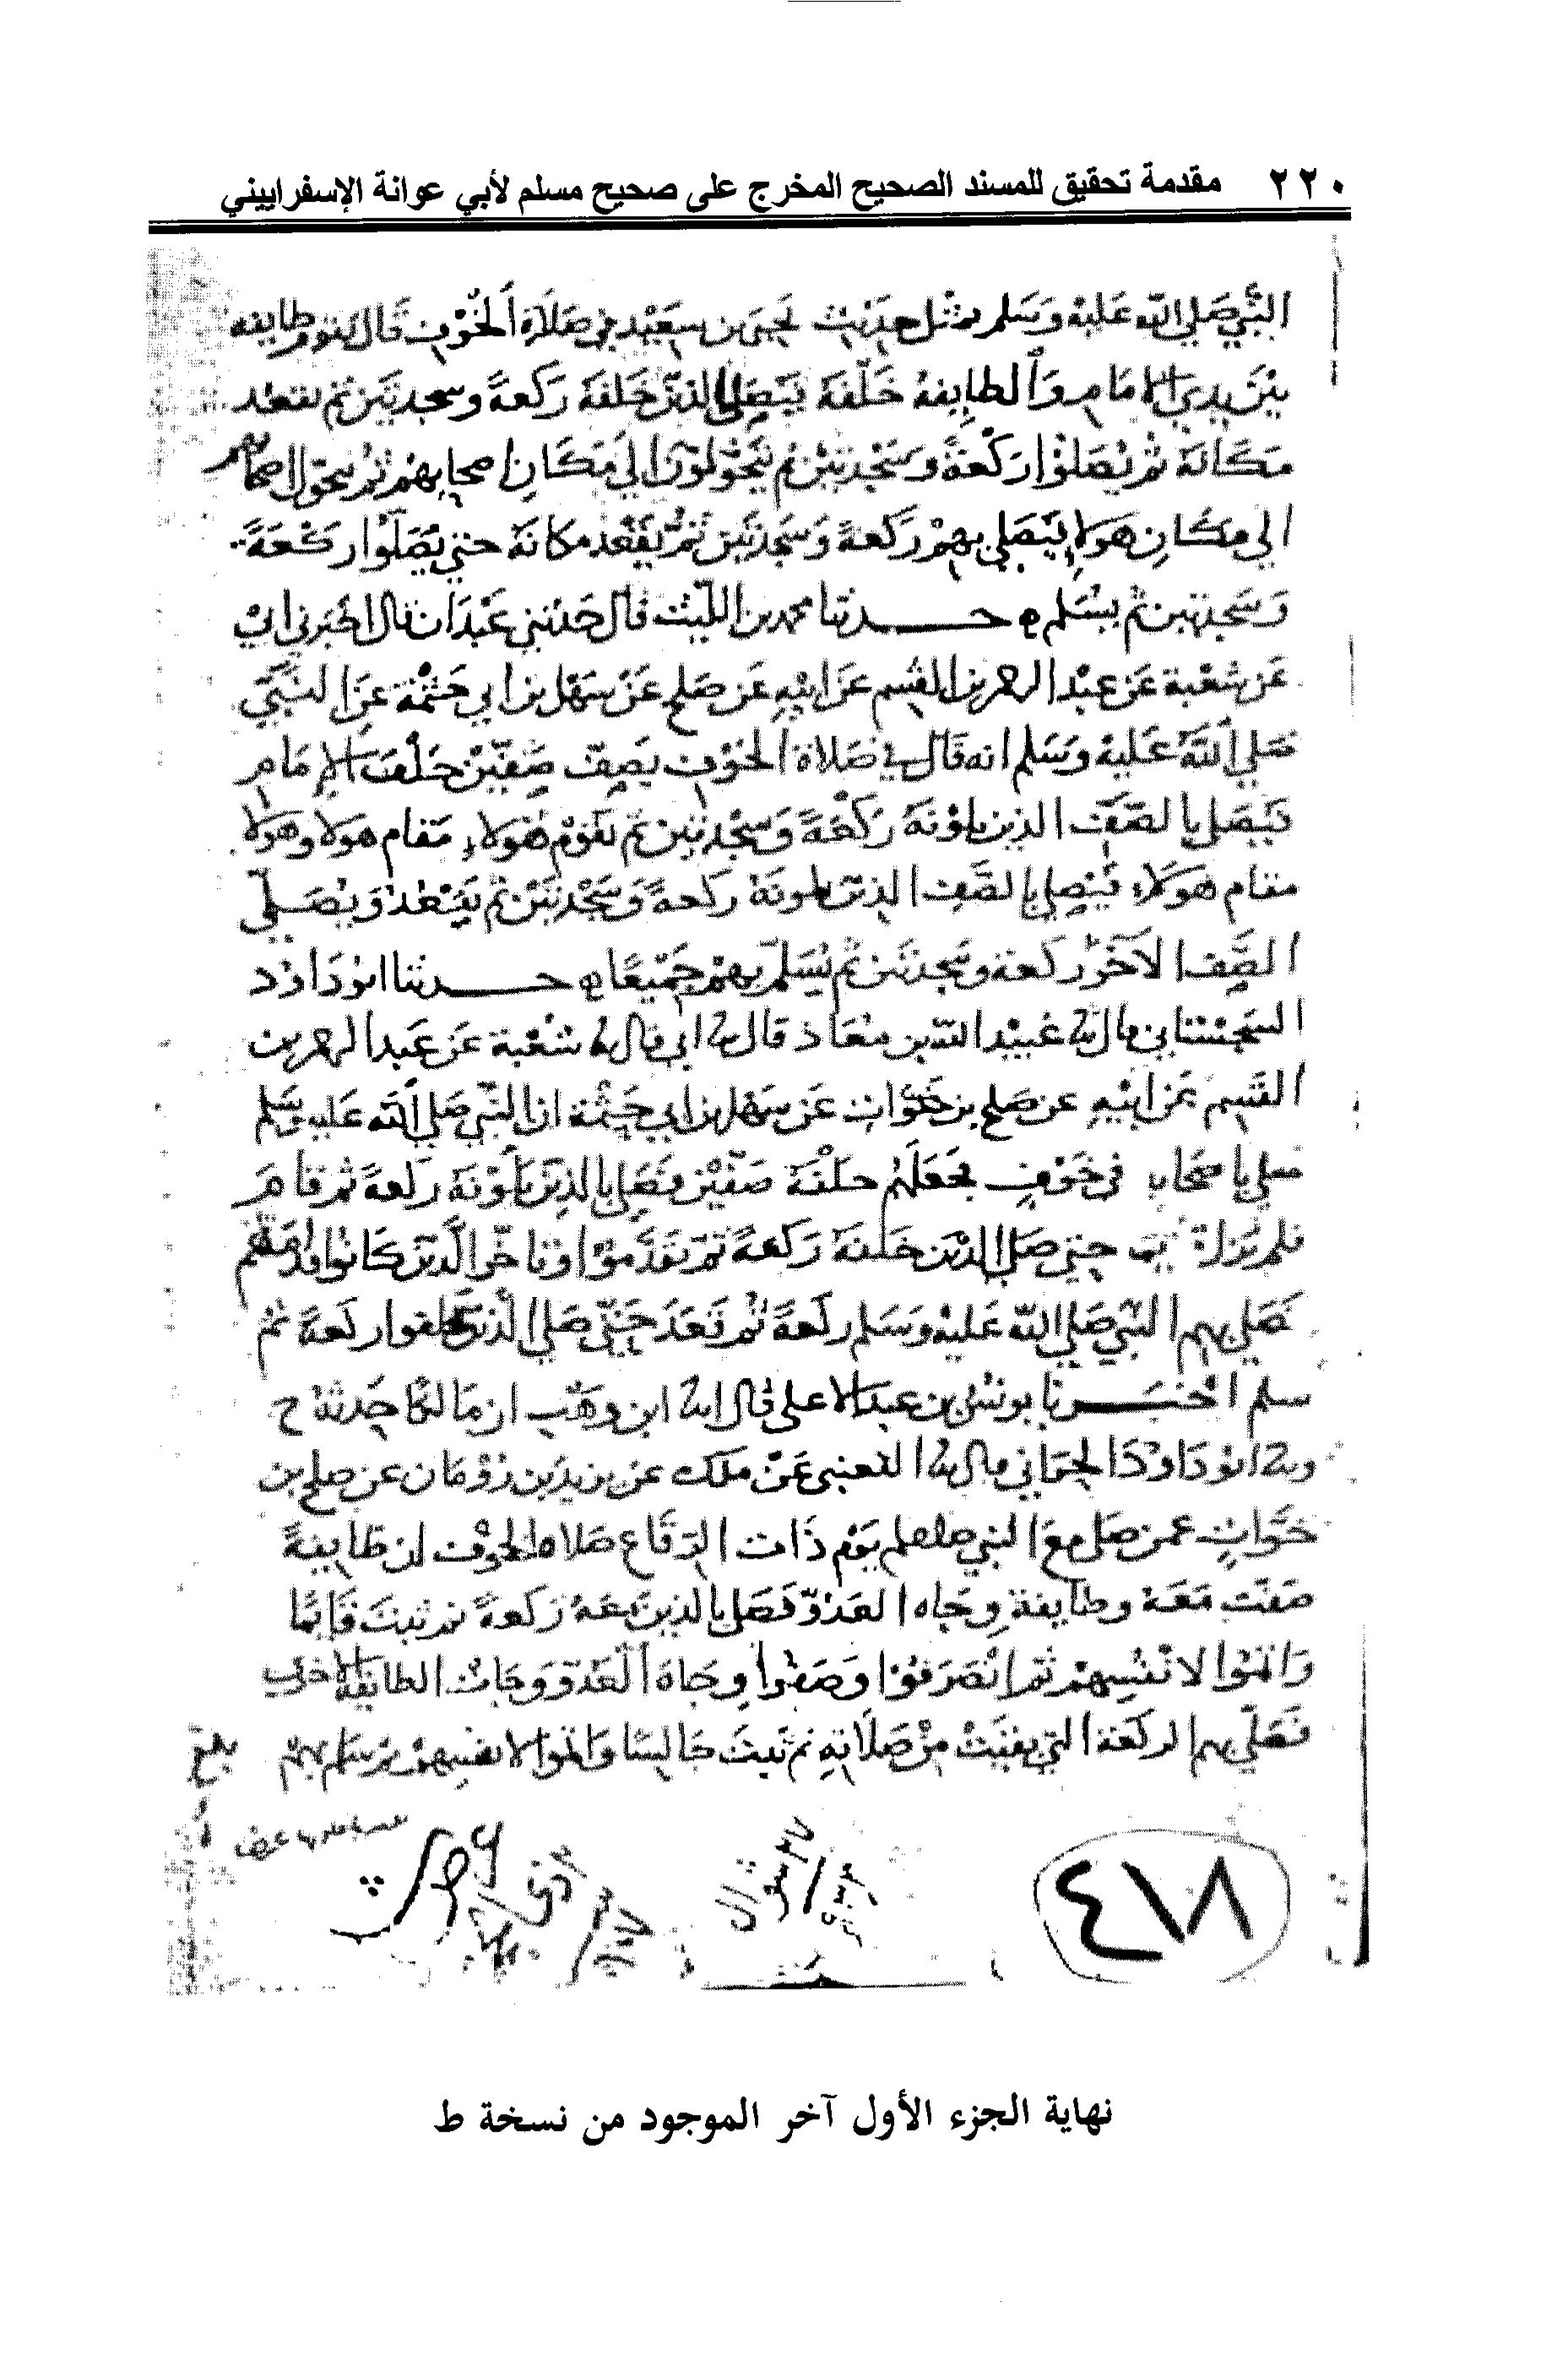 ٢٢٠ مقدمة تحقيق للمسند الصحيح المخرج على صحيح مسلم لأبي عوانة الإسفراييني
النبي صلي الله عليه وسلم بمثل حديث يحيى بن سعيد في صلاة الخوف قال تقوم طايفه
بين يدي الامام والطايفة خلفه فيصلي بالذين خلفه ركعة وسجدتين ثم يقعد
مكانه ثم يصلوا ركعة وسجدتين ثم يتحولون الي مكان اصحابهم ثم يتحول اصحابهم
الي مكان هولاء فيصلي بهم ركعة وسجدتين ثم يقعد مكانه حتي يصلوا ركعة
وسجدتين ثم يسلم ه حدثنا محمد بن الليث قال حدثني عبدان قال اخبرني ابي
عن شعبة عن عبد الرحمن بن القسم عن ابيه عن صلح عن سهل بن ابي حثمة عن النبي
صلي الله عليه وسلم انه قال في صلاة الخوف يصف صفين خلف الإمام
فيصلي بالصف الذين يلونه ركعة وسجدتين ثم يقوم هولاء مقام هولا وهولا
مقام هولاء فيصلي بالصف الذين يلونه ركعة وسجدتين ثم يقعد ويصلي
الصف الآخر ركعة وسجدتين ثم يسلم بهم جميعا ه حدثنا ابو داود
السجستاني قال ثنا عبيد الله بن معاذ قال ثنا ابي قال ثنا شعبة عن عبد الرحمن بن
القسم عن ابيه عن صلح بن خوات عن سهل بن ابي حثمة ان النبي صلي الله عليه وسلم
صلي باصحابه في خوف فجعلهم خلفه صفين فصلي بالذين يلونه ركعة ثم قام
فلم يزل حتي صلي الذين خلفه ركعة ثم تقدموا وتاخر الذين كانوا قدامهم
فصلي بهم النبي صلي الله عليه وسلم ركعة ثم قعد حتي صلي الذين تخلفوا ركعة ثم
سلم اخبرنا يونس بن عبد الاعلى قال انا ابن وهب ان مالكا حدثه ح
وثنا ابو داود الحراني قال ثنا القعنبي عن ملك عن يزيد بن رومان عن صلح بن
خوات عمن صلى مع النبي صلعم يوم ذات الرقاع صلاه الخوف ان طايفة
صفت معه وطايفة وجاه العدو فصلي بالذين معه ركعة ثم ثبت قايما
واتموا لانفسهم ثم انصرفوا وصفوا وجاه العدو وجات الطايفة الاخرى
فصلي بهم الركعة التي بقيت من صلاته ثم ثبت جالسا واتموا لانفسهم ثم سلم بهم بلغ
٤١٨
نهاية الجزء الأول آخر الموجود من نسخة ط